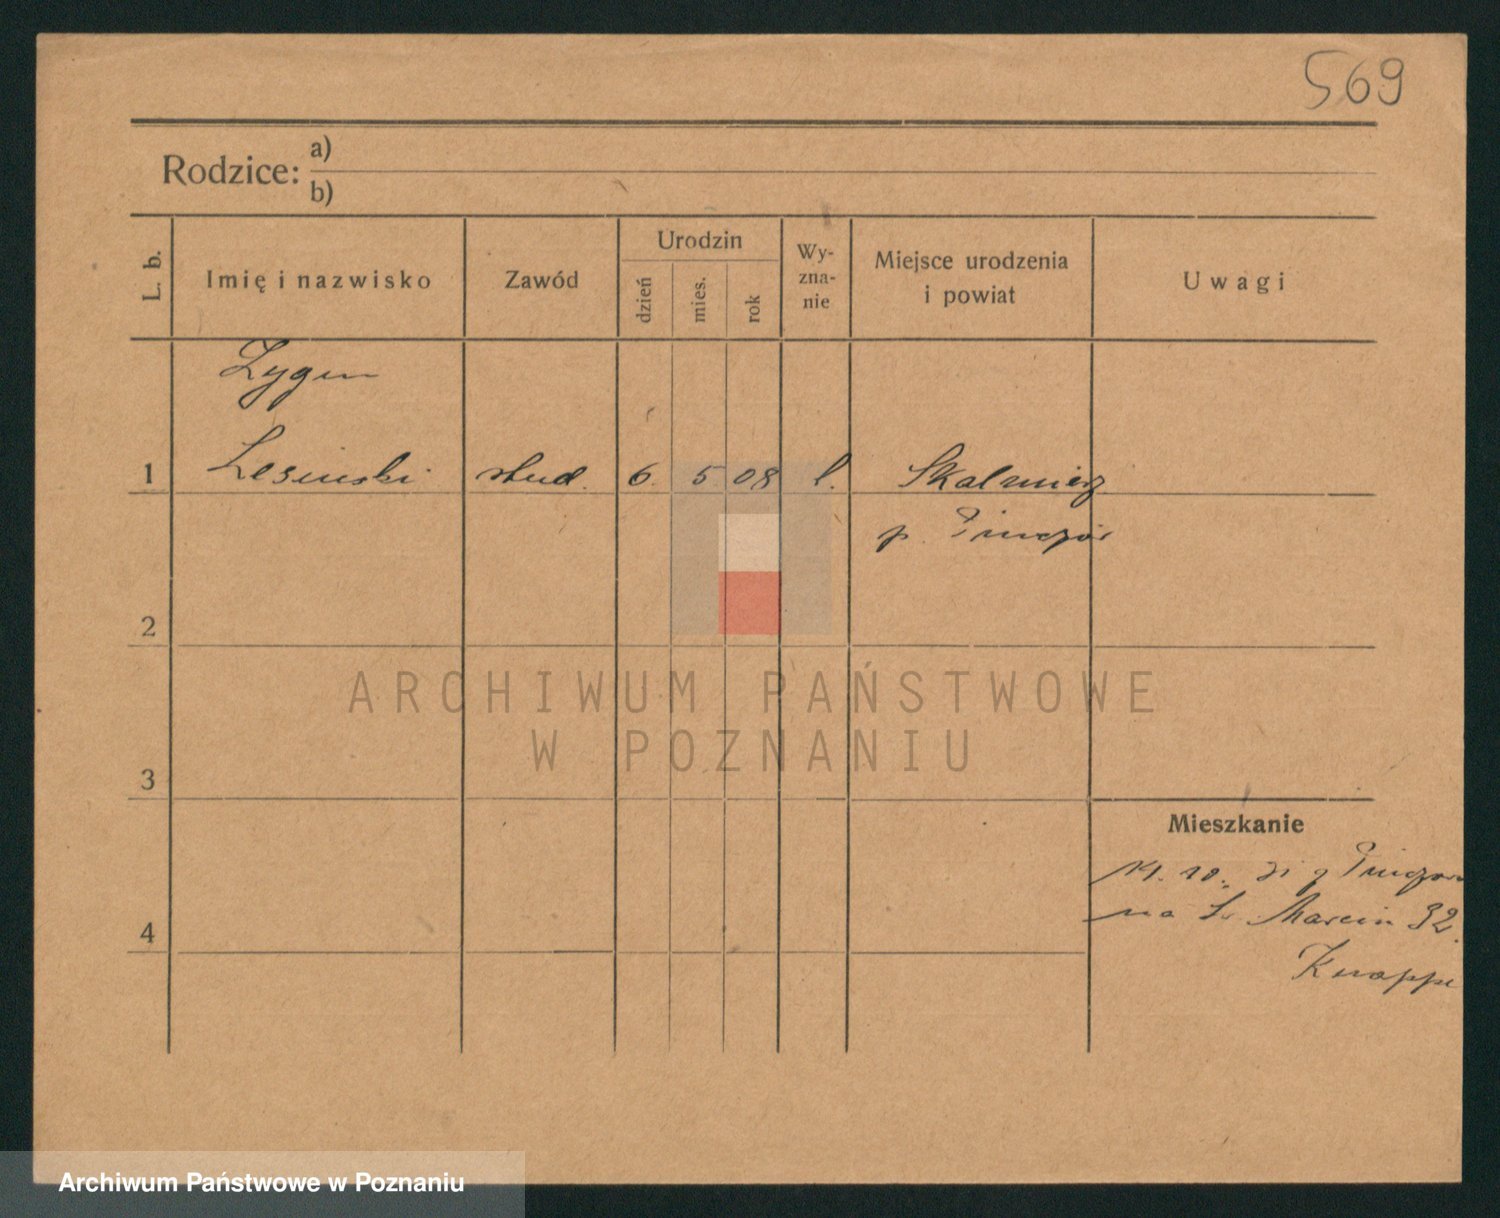 569
Rodzice: a)
b)
L. b.
Imię i nazwisko
Zawód
Urodzin
dzień
mies.
rok
Wy-
zna-
nie
Miejsce urodzenia
i powiat
Uwagi
Zygm
1 Lesinski stud. 6. 5 08 l. Skalmierz
p. Pinczów
2
3
4
Mieszkanie
Pinczow
na Marcin 32.
Knappe
ARCHIWUM PAŃSTWOWE
W POZNANIU
Archiwum Państwowe w Poznaniu